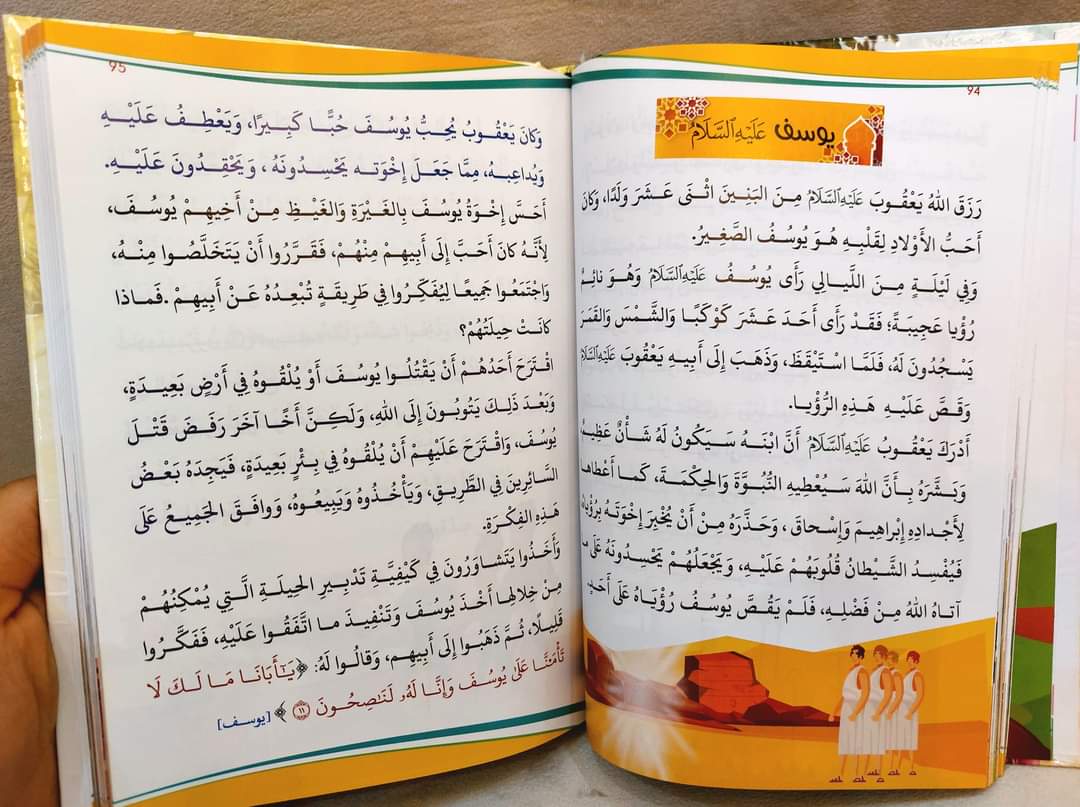 94
يوسف عَلَيْهِ السَّلَامُ
رَزَقَ اللهُ يَعْقُوبَ عَلَيْهِ السَّلَامُ مِنَ البَنِينَ اثْنَى عَشَرَ وَلَدًا، وَكَانَ
أَحَبُّ الأَوْلَادِ لِقَلْبِهِ هُوَ يُوسُفُ الصَّغِيرُ.
وَفِي لَيْلَةٍ مِنَ اللَّيَالِي رَأَى يُوسُفُ عَلَيْهِ السَّلَامُ وَهُوَ نائِمٌ
رُؤْيا عَجِيبَةً؛ فَقَدْ رَأَى أَحَدَ عَشَرَ كَوْكَبًا وَالشَّمْسَ وَالقَمَرَ
يَسْجُدُونَ لَهُ، فَلَمَّا اسْتَيْقَظَ، وَذَهَبَ إِلَى أَبِيهِ يَعْقُوبَ عَلَيْهِ السَّلَامُ
وَقَصَّ عَلَيْهِ هَذِهِ الرُّؤْيا.
أَدْرَكَ يَعْقُوبُ عَلَيْهِ السَّلَامُ أَنَّ ابْنَهُ سَيَكُونُ لَهُ شَأْنٌ عَظِيمٌ
وَبَشَّرَهُ بِأَنَّ اللهَ سَيُعْطِيهِ النُّبُوَّةَ وَالحِكْمَةَ، كَمَا أَعْطاها
لِأَجْدادِهِ إِبْراهِيمَ وَإِسْحاقَ، وَحَذَّرَهُ مِنْ أَنْ يُخْبِرَ إِخْوَتَهُ بِرُؤْياهُ
فَيُفْسِدُ الشَّيْطانُ قُلُوبَهُمْ عَلَيْهِ، وَيَجْعَلُهُمْ يَحْسِدُونَهُ عَلَى
آتاهُ اللهُ مِنْ فَضْلِهِ، فَلَمْ يَقُصَّ يُوسُفُ رُؤْيَاهُ عَلَى أَحَدٍ.
95
وَكانَ يَعْقُوبُ يُحِبُّ يُوسُفَ حُبًّا كَبِيرًا، وَيَعْطِفُ عَلَيْهِ
وَيُداعِبُهُ، مِمَّا جَعَلَ إِخْوَته يَحْسِدُونَهُ، وَيَحْقِدُونَ عَلَيْهِ.
أَحَسَّ إِخْوَةُ يُوسُفَ بِالغَيْرَةِ وَالغَيْظِ مِنْ أَخِيهِمْ يُوسُفَ،
لِأَنَّهُ كانَ أَحَبَّ إِلَى أَبِيهِمْ مِنْهُمْ، فَقَرَّرُوا أَنْ يَتَخَلَّصُوا مِنْهُ،
وَاجْتَمَعُوا جَمِيعًا لِيُفَكِّرُوا فِي طَرِيقَةٍ تُبْعِدُهُ عَنْ أَبِيهِمْ .فَماذا
كانَتْ حِيلَتُهُمْ؟
اقْتَرَحَ أَحَدُهُمْ أَنْ يَقْتُلُوا يُوسُفَ أَوْ يُلْقُوهُ فِي أَرْضٍ بَعِيدَةٍ،
وَبَعْدَ ذلِكَ يَتُوبُونَ إِلَى اللهِ، وَلَكِنَّ أَخًا آخَرَ رَفَضَ قَتْلَ
يُوسُفَ، وَاقْتَرَحَ عَلَيْهِمْ أَنْ يُلْقُوهُ فِي بِئْرٍ بَعِيدَةٍ، فَيَجِدَهُ بَعْضُ
السَّائِرِينَ فِي الطَّرِيقِ، وَيَأْخُذُوهُ وَيَبِيعُوهُ، وَوافَقَ الجَمِيعُ عَلَى
هَذِهِ الفِكْرَةِ.
وَأَخَذُوا يَتَشاوَرُونَ فِي كَيْفِيَّةِ تَدْبِيرِ الحِيلَةِ الَّتِي يُمْكِنُهُمْ
مِنْ خِلالِها أَخْذَ يُوسُفَ وَتَنْفِيذَ ما اتَّفَقُوا عَلَيْهِ، فَفَكَّرُوا
قَلِيلًا، ثُمَّ ذَهَبُوا إِلَى أَبِيهِم، وَقالُوا لَهُ: ﴿يَٰٓأَبَانَا مَا لَكَ لَا
تَأْمَ۫نَّا عَلَىٰ يُوسُفَ وَإِنَّا لَهُۥ لَنَٰصِحُونَ ۝١١﴾ [يوسف]